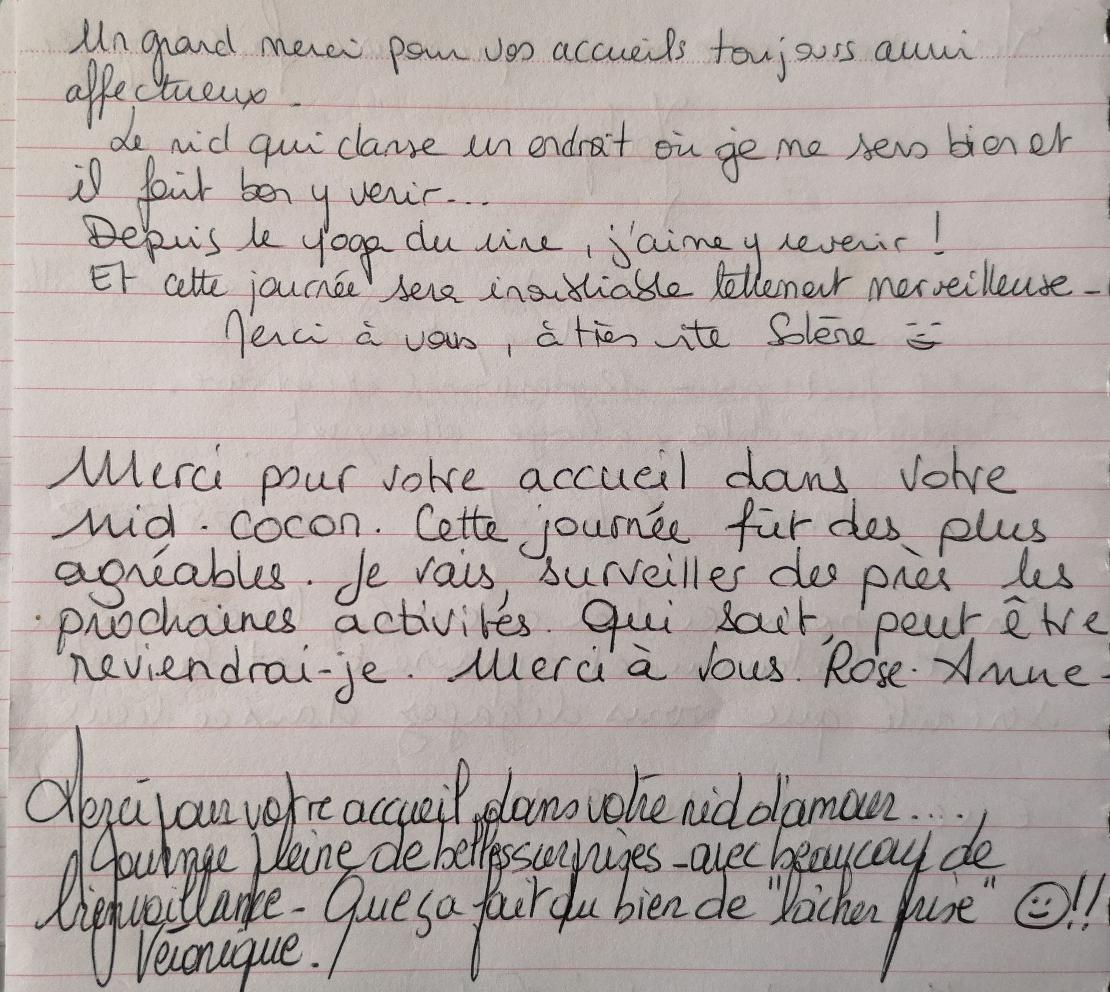 Un grand merci pour vos accueils toujours aussi
affectueux.
Le nid qui danse un endroit où je me sens bien et
il fait bon y venir...
Depuis le yoga du rire, j'aime y revenir !
Et cette journée sera inoubliable tellement merveilleuse -
Merci à vous, à très vite Solène
Merci pour votre accueil dans votre
nid. cocon. Cette journée fût des plus
agréables. Je vais surveiller des près les
prochaines activités. Qui sait, peut être
reviendrai-je. Merci à vous. Rose. Anne-
Merci pour votre accueil, dans votre nid d'amour....,
Journée pleine de belles surprises - avec beaucoup de
bienveillance - Que ça fait du bien de "lâcher prise" ☺!!
Véronique.